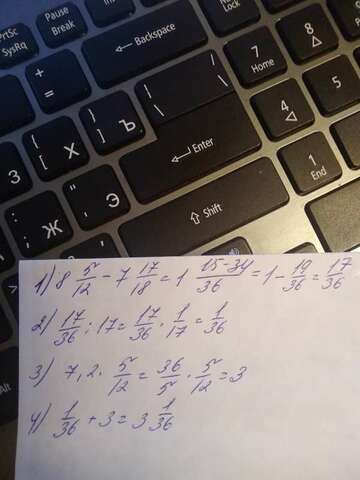 PrtSc
SysRq
Pause
Break
Num
Lock
+
=
← Backspace
7
Home
8
△
З
{
[ Х
}
] Ъ
|
\
/
4
◁
5
:
; Ж
"
' Э
← Enter
1
End
⇧ Shift
Alt
1) 8 5/12 - 7 17/18 = 1 15-34/36 = 1 - 19/36 = 17/36
2) 17/36 : 17 = 17/36 · 1/17 = 1/36
3) 7,2 · 5/12 = 36/5 · 5/12 = 3
4) 1/36 + 3 = 3 1/36